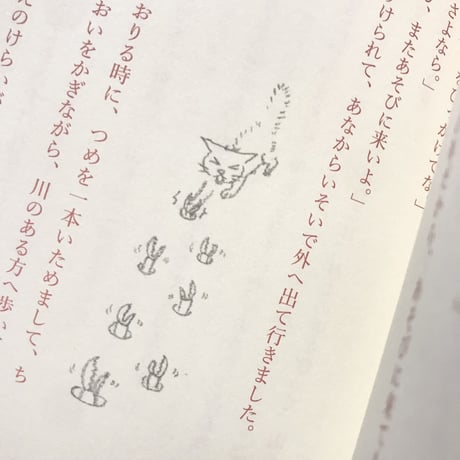 かけてな」
さよなら。」
またあそびに来いよ。」
けられて、あなからいそいで外へ出て行きました。
おりる時に、つめを一本いためまして、ち
おいをかぎながら、川のある方へ歩い
のけらいが